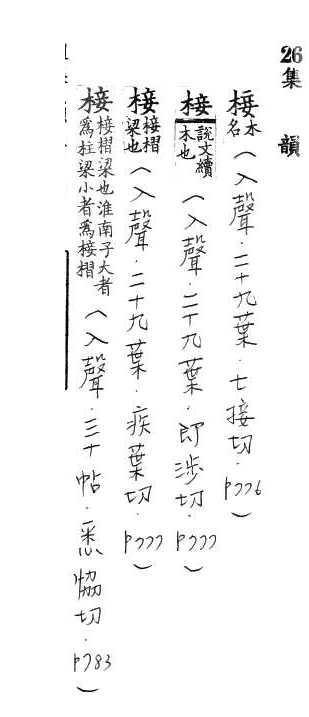 26集 韻
椄木名(入聲.二十九葉.七接切.P776)
椄說文續木也(入聲.二十九葉.即涉切.P777)
椄椄槢梁也(入聲.二十九葉.疾葉切.P777)
椄椄槢梁也淮南子大者為柱梁小者為椄槢(入聲.三十帖.悉協切.P783)